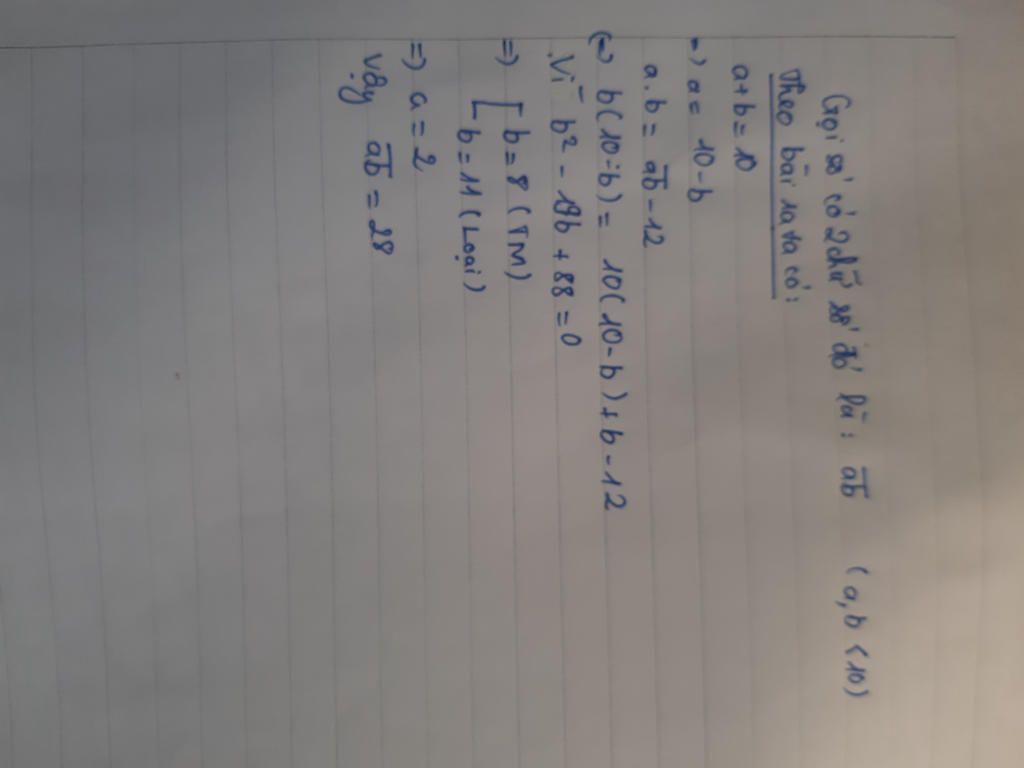 Gọi số có 2 chữ số đó là: ab̅ (a,b < 10)
Theo bài ra ta có:
a+b=10
=> a = 10-b
a.b = ab̅ - 12
(=) b(10-b) = 10(10-b)+b-12
Vì b² - 19b + 88 = 0
=> [ b=8 (TM)
b=11 (Loại)
=> a=2
Vậy ab̅ = 28